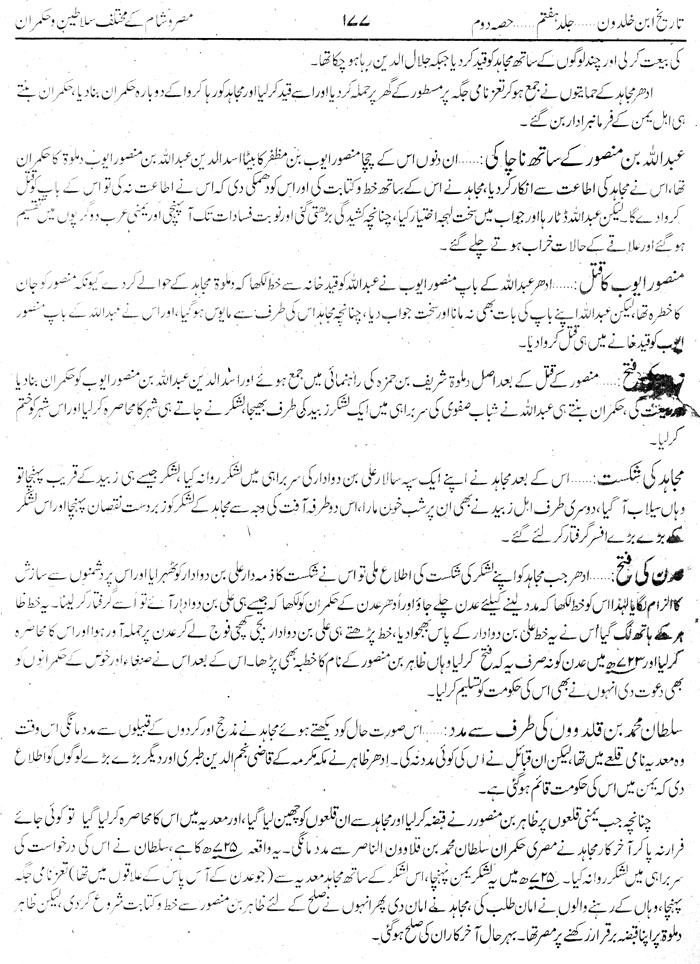 تاریخ ابن خلدون ...... جلد ہفتم ...... حصہ دوم ۱۷۷ مصر و شام کے مختلف سلاطین و حکمران
کی بیعت کرلی اور چند لوگوں کے ساتھ مجاہد کو قید کردیا جبکہ جلال الدین رہا ہو چکا تھا۔
ادھر مجاہد کے حمایتوں نے جمع ہو کر تعز نامی جگہ پر مسطور کے گھر پر حملہ کردیا اور اسے قید کرلیا اور مجاہد کو رہا کروا کے دوبارہ حکمران بنادیا، حکمران بنتے
ہی اہل یمن کے فرمانبردار بن گئے۔
عبداللہ بن منصور کے ساتھ ناچاکی:...... ان دنوں اس کے چچا منصور ایوب بن مظفر کا بیٹا اسد الدین عبداللہ بن منصور ایوب دملوۃ کا حکمران
تھا، اس نے مجاہد کی اطاعت سے انکار کردیا، مجاہد نے اس کے ساتھ خط و کتابت کی اور اس کو دھمکی دی کہ اس نے اطاعت نہ کی تو اس کے باپ کو قتل
کروادے گا۔ لیکن عبداللہ ڈٹا رہا اور جواب میں سخت لہجہ اختیار کیا، چنانچہ کشیدگی بڑھتی گئی اور نوبت فسادات تک آ پہنچی اور یمنی عرب دو گروپوں میں تقسیم
ہو گئے اور علاقے کے حالات خراب ہوتے چلے گئے۔
منصور ایوب کا قتل:...... ادھر عبداللہ کے باپ منصور ایوب نے عبداللہ کو قید خانہ سے خط لکھا کہ دملوۃ مجاہد کے حوالے کردے کیونکہ منصور کو جان
کا خطرہ تھا، لیکن عبداللہ اپنے باپ کی بات بھی نہ مانا اور سخت جواب دیا، چنانچہ مجاہد اس کی طرف سے مایوس ہو گیا، اور اس نے عبداللہ کے باپ منصور
ایوب کو قید خانے میں ہی قتل کروا دیا۔
فتح:...... منصور کے قتل کے بعد اصل دملوۃ شریف بن حمزہ کی راہنمائی میں جمع ہوئے اور اسد الدین عبداللہ بن منصور ایوب کو حکمران بنادیا
کی، حکمران بنتے ہی عبداللہ نے شہاب صفوی کی سربراہی میں ایک لشکر زبید کی طرف بھیجا، لشکر نے جاتے ہی شہر کا محاصرہ کرلیا اور اس شہر کو ختم
کرلیا۔
مجاہد کی شکست:...... اس کے بعد مجاہد نے اپنے ایک سپہ سالار علی بن دوادار کی سربراہی میں لشکر روانہ کیا، لشکر جیسے ہی زبید کے قریب پہنچا تو
وہاں سیلاب آ گیا، دوسری طرف اہل زبید نے بھی ان پر شب خون مارا، اس دو طرفہ آفت کی وجہ سے مجاہد کے لشکر کو زبردست نقصان پہنچا اور اس لشکر
کے بڑے بڑے افسر گرفتار کرلئے گئے۔
عدن کی فتح:...... ادھر جب مجاہد کو اپنے لشکر کی شکست کی اطلاع ملی تو اس نے شکست کا ذمہ دار علی بن دوادار کو ٹھہرایا اور اس پر دشمنوں سے سازش
کا الزام لگایا لہٰذا اس کو خط لکھا کہ مدد لینے کیلئے عدن چلے جاؤ اور ادھر عدن کے حکمران کو لکھا کہ جیسے ہی علی بن دوادار آئے تو اسے گرفتار کرلینا۔ یہ خط ظا
ہر کے ہاتھ لگ گیا اس نے یہ خط علی بن دوادار کے پاس بھجوا دیا، خط پڑھتے ہی علی بن دوادار بچی کھچی فوج لے کر عدن پر حملہ آور ہوا اور اس کا محاصرہ
کرلیا اور ۷۲۳ھ میں عدن کو نہ صرف یہ کہ فتح کرلیا وہاں ظاہر بن منصور کے نام کا خطبہ بھی پڑھا۔ اس کے بعد اس نے صنعاء اور خوص کے حکمرانوں کو
بھی دعوت دی انہوں نے بھی اس کی حکومت کو تسلیم کرلیا۔
سلطان محمد بن قلدووں کی طرف سے مدد:...... اس صورت حال کو دیکھتے ہوئے مجاہد نے مذحج اور کردوں کے قبیلوں سے مدد مانگی اس وقت
وہ معدیہ نامی قلعے میں تھا، لیکن ان قبائل نے اس کی کوئی مدد نہ کی۔ ادھر ظاہر نے مکہ مکرمہ کے قاضی نجم الدین طبری اور دیگر بڑے بڑے لوگوں کو اطلاع
دی کہ یمن میں اس کی حکومت قائم ہو گئی ہے۔
چنانچہ جب یمنی قلعوں پر ظاہر بن منصور نے قبضہ کرلیا اور مجاہد سے ان قلعوں کو چھین لیا گیا، اور معدیہ میں اس کا محاصرہ کرلیا گیا تو کوئی جائے
فرار نہ پا کر آخر کار مجاہد نے مصری حکمران سلطان محمد بن قلاوون الناصر سے مدد مانگی۔ یہ واقعہ ۷۲۵ھ کا ہے، سلطان نے اس کی درخواست کی
سربراہی میں لشکر روانہ کیا۔ ۷۲۵ھ میں یہ لشکر یمن پہنچا، اس لشکر کے ساتھ مجاہد معدیہ سے (جو عدن کے آس پاس کے علاقوں میں تھا) تعز نامی جگہ
پہنچا، وہاں کے رہنے والوں نے امان طلب کی، مجاہد نے امان دی پھر انہوں نے صلح کے لئے ظاہر بن منصور سے خط و کتابت شروع کردی، لیکن ظاہر
دملوۃ پر اپنا قبضہ برقرار رکھنے پر مصر تھا۔ بہر حال آخر کار ان کی صلح ہو گئی۔